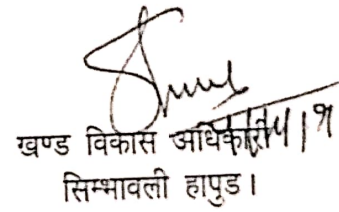 खण्ड विकास अधिकारी
सिम्भावली हापुड।